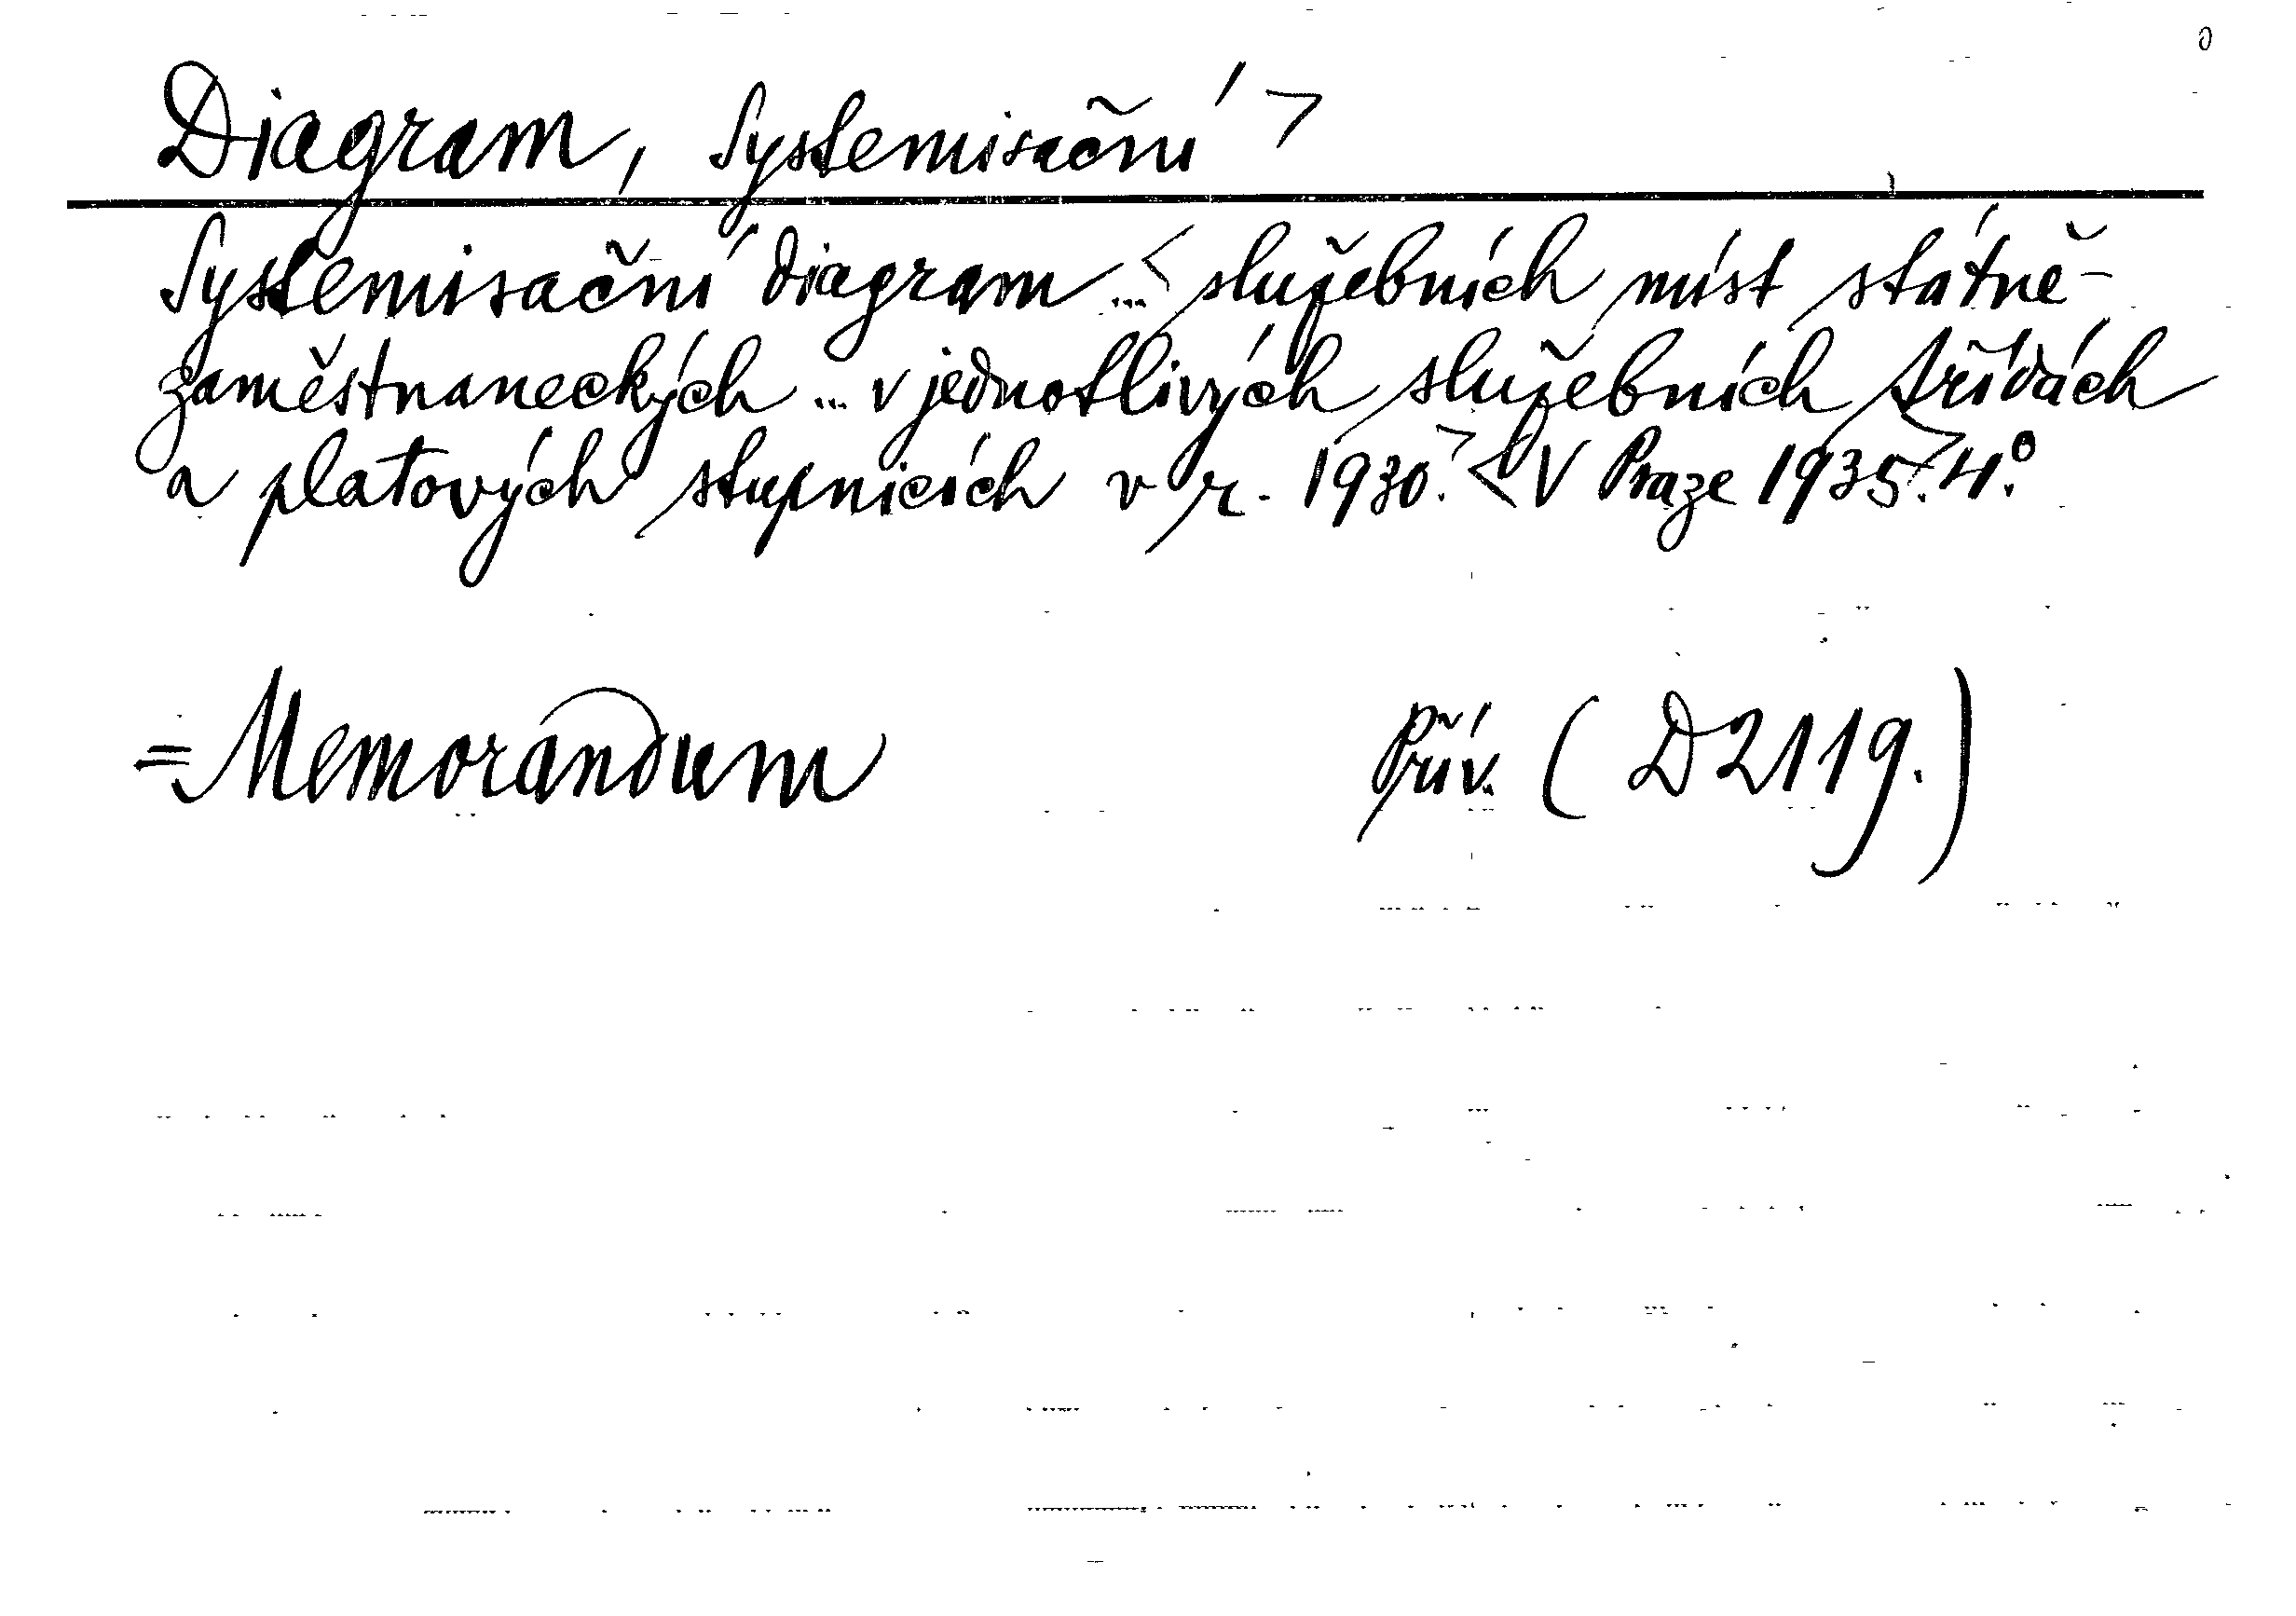 Diagram, Systemisační >
Systemisační diagram ... < služebních míst státně-
zaměstnaneckých ... v jednotlivých služebních třídách
a platových stupnicích v r. 1930. > < V Praze 1935. > 4.°
= Memorandum Přív. ( D 2119. )